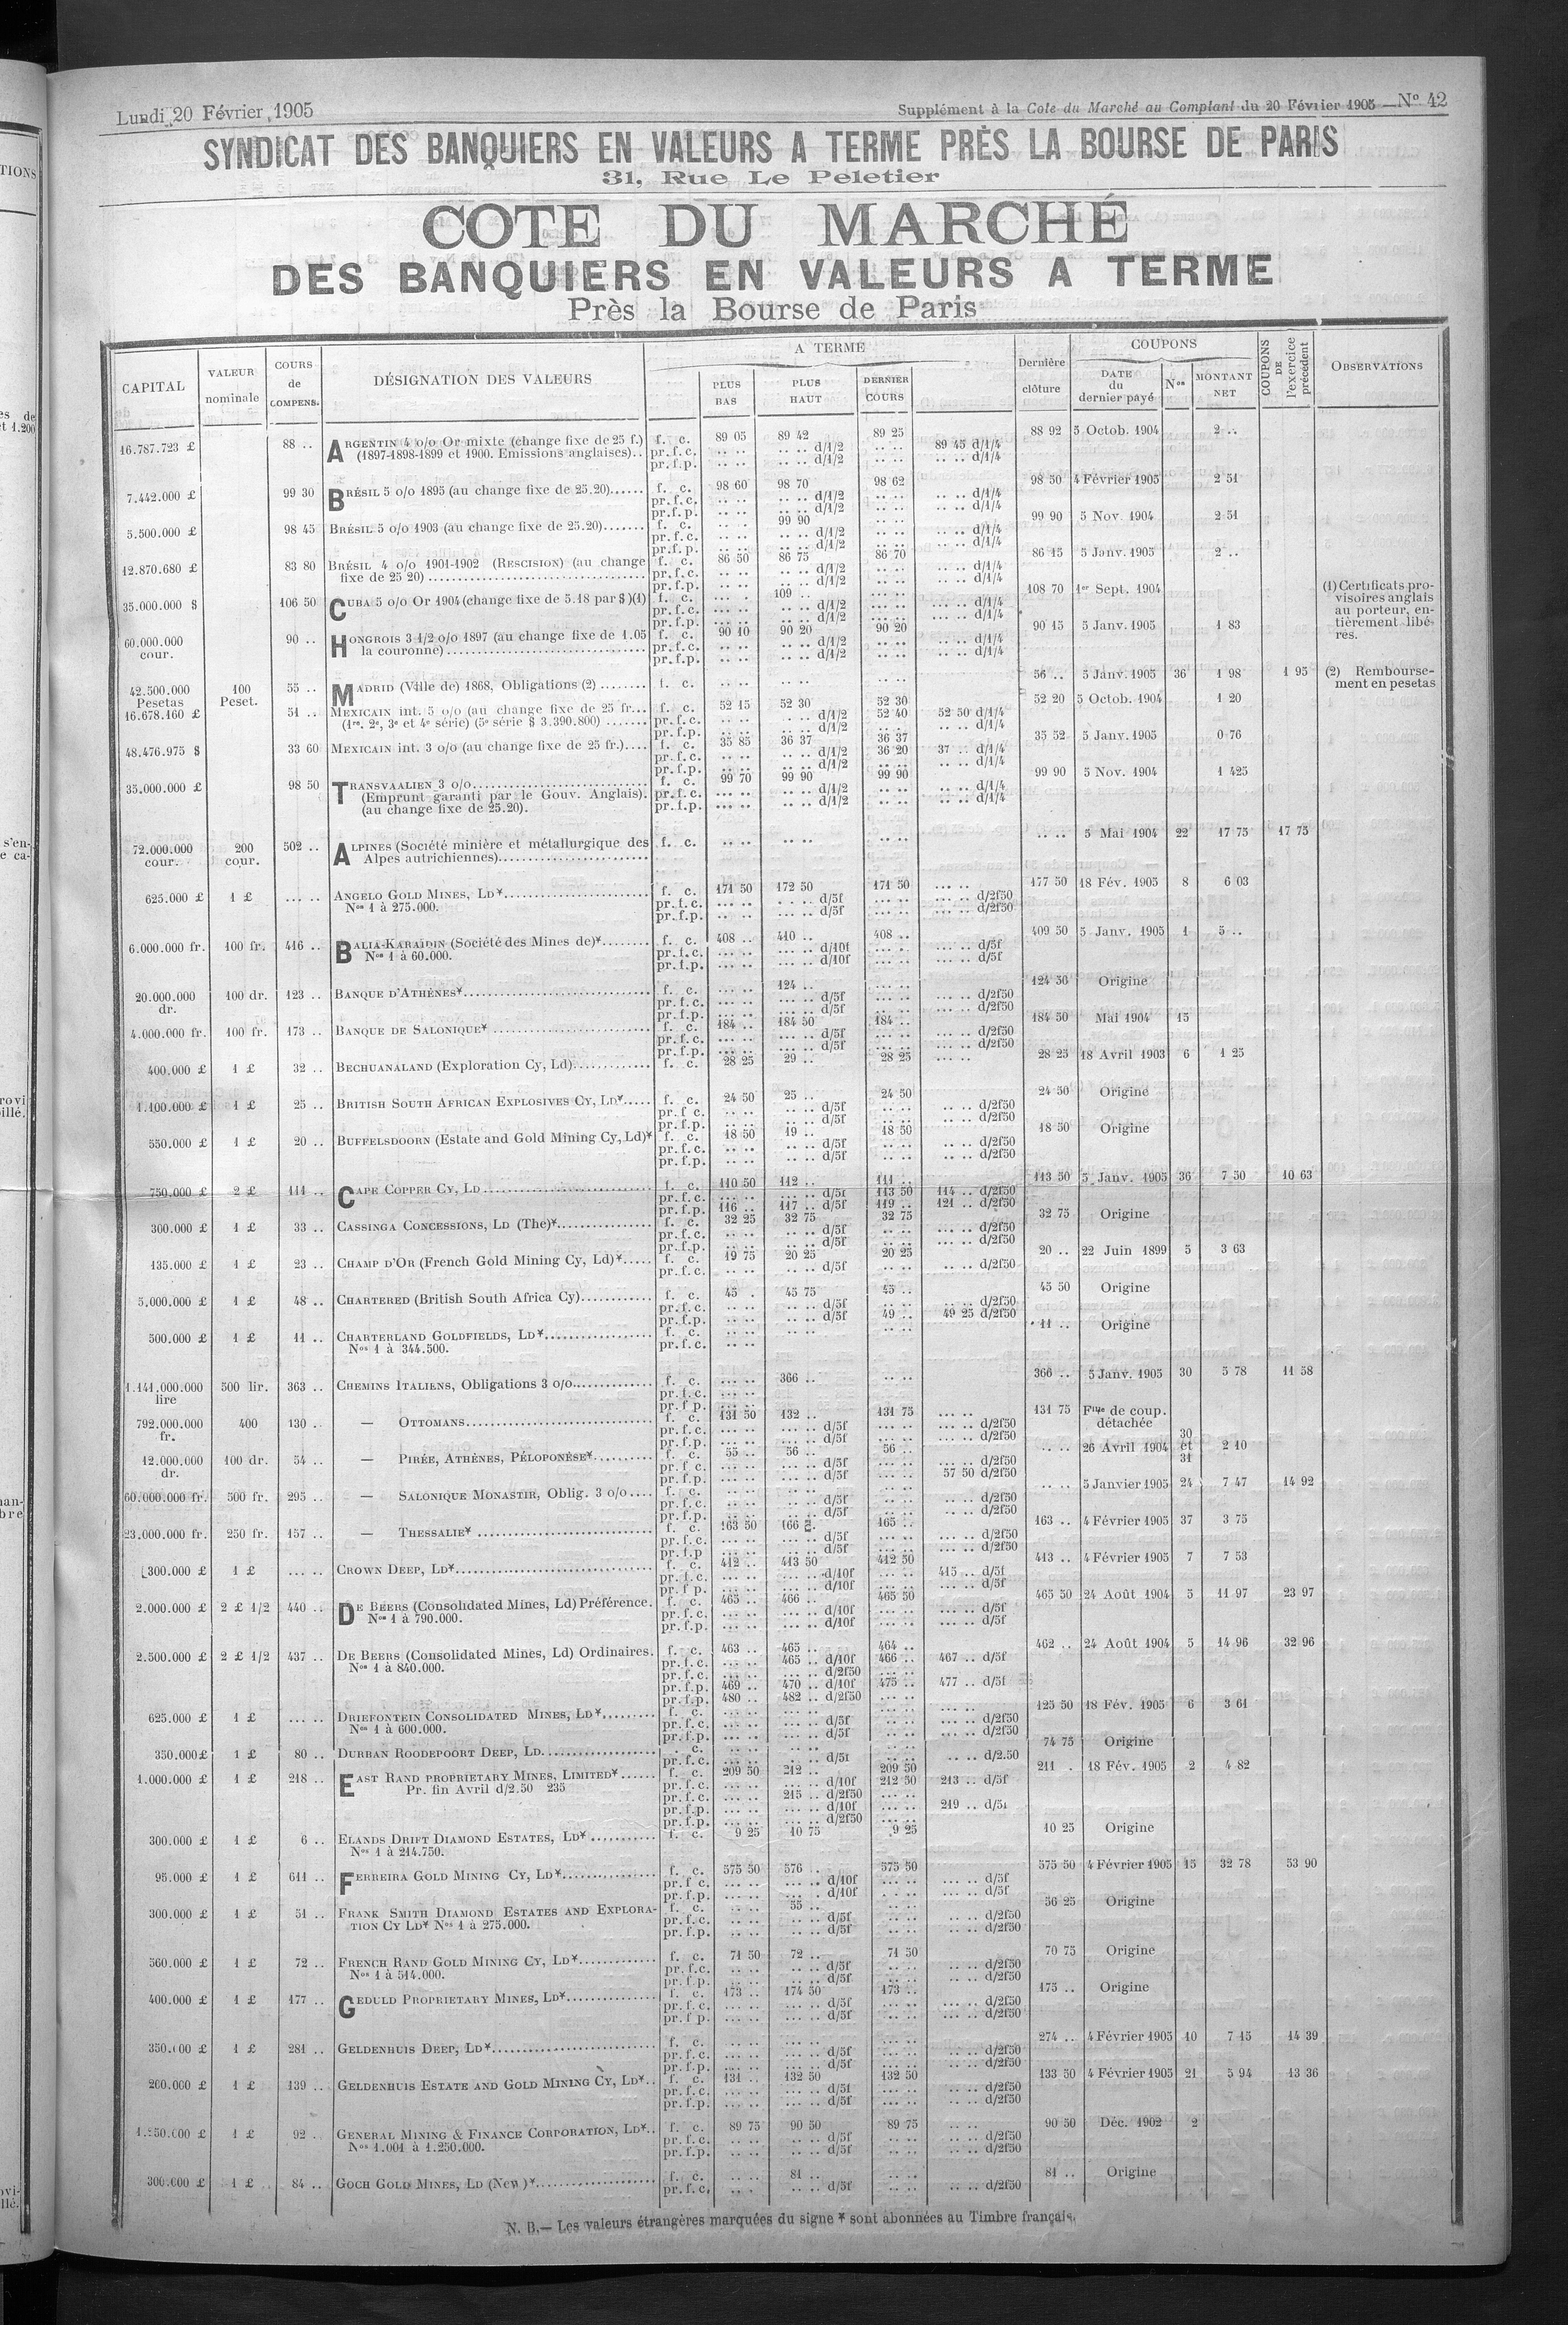 Lundi 20 Février 1905
Supplément à la Cote du Marché au Comptant du 20 Février 1905 — Nº 42
SYNDICAT DES BANQUIERS EN VALEURS A TERME PRÈS LA BOURSE DE PARIS
31, Rue Le Peletier
COTE DU MARCHÉ
DES BANQUIERS EN VALEURS A TERME
Près la Bourse de Paris
CAPITAL VALEUR nominale COURS de COMPENS. DÉSIGNATION DES VALEURS A TERME PLUS BAS PLUS HAUT DERNIER COURS Dernière clôture COUPONS DATE du dernier payé Nos MONTANT NET COUPONS DE l'exercice précédent OBSERVATIONS
16.787.723 £ 88 .. ARGENTIN 4 o/o Or mixte (change fixe de 25 f.) f. c. 89 05 89 42 89 25 89 45 d/1/4 88 92 5 Octob. 1904 2 ..
(1897-1898-1899 et 1900. Emissions anglaises).. pr.f.c. .. .. .. .. d/1/2 .. ..
pr.f.p. .. .. .. .. d/1/2 .. .. .. .. d/1/4
7.442.000 £ 99 30 BRÉSIL 5 o/o 1895 (au change fixe de 25.20)...... f. c. 98 60 98 70 98 62 98 50 4 Février 1905 2 51
pr.f.c. .. .. .. .. d/1/2 .. .. .. .. d/1/4
pr.f.p. .. .. .. .. d/1/2 .. .. .. .. d/1/4
5.500.000 £ 98 45 BRÉSIL 5 o/o 1903 (au change fixe de 25.20)....... f. c. .. .. 99 90 .. .. 99 90 5 Nov. 1904 2 51
pr.f.c. .. .. .. .. d/1/2 .. .. .. .. d/1/4
pr.f.p. .. .. .. .. d/1/2 .. .. .. .. d/1/4
12.870.680 £ 83 80 BRÉSIL 4 o/o 1901-1902 (RESCISION) (au change f. c. 86 50 86 75 86 70 86 15 5 Janv. 1905 2 ..
fixe de 25 20) pr.f.c. .. .. .. .. d/1/2 .. .. .. .. d/1/4
pr.f.p. .. .. .. .. d/1/2 .. .. .. .. d/1/4
35.000.000 $ 106 50 CUBA 5 o/o Or 1904 (change fixe de 5.18 par $)(1) f. c. ... . 109 .. ... .. 108 70 1er Sept. 1904 (1) Certificats provisoires anglais au porteur, entièrement libérés.
pr.f.c. ... .. ... .. d/1/2 ... .. ... .. d/1/4
pr.f.p. ... .. ... .. d/1/2 ... .. ... .. d/1/4
60.000.000 cour. 90 .. HONGROIS 3 1/2 o/o 1897 (au change fixe de 1.05 f. c. 90 10 90 20 90 20 90 15 5 Janv. 1905 1 83
la couronne) pr.f.c. .. .. .. .. d/1/2 .. .. .. .. d/1/4
pr.f.p. .. .. .. .. d/1/2 .. .. .. .. d/1/4
42.500.000 Pesetas 100 Peset. 55 .. MADRID (Ville de) 1868, Obligations (2) ........ f. c. .. .. .. .. .. .. 56 .. 5 Janv. 1905 36 1 98 1 95 (2) Remboursement en pesetas
16.678.160 £ 51 .. MEXICAIN int. 5 o/o (au change fixe de 25 fr... f. c. 52 15 52 30 52 30 52 20 5 Octob. 1904 1 20
(1re, 2e, 3e et 4e série) (5e série $ 3.390.800) ....... pr.f.c. .. .. .. .. d/1/2 52 40 52 50 d/1/4
pr.f.p. .. .. .. .. d/1/2 .. .. .. .. d/1/4
48.476.975 $ 33 60 MEXICAIN int. 3 o/o (au change fixe de 25 fr.).... f. c. 35 85 36 37 36 37 35 52 5 Janv. 1905 0 76
pr.f.c. .. .. .. .. d/1/2 36 20 37 .. d/1/4
pr.f.p. .. .. .. .. d/1/2 .. .. .. .. d/1/4
35.000.000 £ 98 50 TRANSVAALIEN 3 o/o f. c. 99 70 99 90 99 90 99 90 5 Nov. 1904 1 425
(Emprunt garanti par le Gouv. Anglais). pr.f.c. ... .. .. .. d/1/2 ... .. .. .. d/1/4
(au change fixe de 25.20). pr.f.p. ... .. .. .. d/1/2 ... .. .. .. d/1/4
72.000.000 cour. 200 cour. 502 .. ALPINES (Société minière et métallurgique des f. c. .. .. .. .. .. .. .. .. 5 Mai 1904 22 17 75 17 75
Alpes autrichiennes)
625.000 £ 1 £ ... .. ANGELO GOLD MINES, LD¥ f. c. 171 50 172 50 171 50 ... .. 177 50 18 Fév. 1905 8 6 03
Nos 1 à 275.000. pr.f.c. ... .. .. .. d/5f ... .. ... .. d/2f50
pr.f.p. .. .. ... .. d/5f ... .. ... .. d/2f50
6.000.000 fr. 100 fr. 416 .. BALIA-KARAÏDIN (Société des Mines de)¥........ f. c. 408 .. 410 .. 408 .. 409 50 5 Janv. 1905 1 5 ..
Nos 1 à 60.000. pr.f.c. ... .. ... .. d/10f ... .. ... .. d/5f
pr.f.p. ... .. ... .. d/10f ... .. ... .. d/5f
20.000.000 dr. 100 dr. 123 .. BANQUE D'ATHÈNES¥ f. c. ... .. 124 .. ... .. 124 50 Origine
pr.f.c. ... .. ... .. d/5f ... .. ... .. d/2f50
pr.f.p. ... .. ... .. d/5f ... .. ... .. d/2f50
4.000.000 fr. 100 fr. 173 .. BANQUE DE SALONIQUE¥ f. c. 184 .. 184 50 184 .. 184 50 Mai 1904 15
pr.f.c. ... .. ... .. d/5f ... .. ... .. d/2f50
pr.f.p. ... .. ... .. d/5f ... .. ... .. d/2f50
400.000 £ 1 £ 32 .. BECHUANALAND (Exploration Cy, Ld) f. c. 28 25 29 .. 28 25 ... .. 28 25 18 Avril 1903 6 1 25
1.100.000 £ 1 £ 25 .. BRITISH SOUTH AFRICAN EXPLOSIVES CY, LD¥..... f. c. 24 50 25 .. 24 50 24 50 Origine
pr.f c. .. .. .. .. d/5f .. .. .. .. d/2f50
pr.f.p. .. .. .. .. d/5f .. .. .. .. d/2f50
550.000 £ 1 £ 20 .. BUFFELSDOORN (Estate and Gold Mining Cy, Ld)¥ f. c. 18 50 19 .. 18 50 18 50 Origine
pr.f.c. .. .. .. .. d/5f .. .. .. .. d/2f50
pr.f.p. .. .. .. .. d/5f .. .. .. .. d/2f50
750.000 £ 2 £ 111 .. CAPE COPPER CY, LD f. c. 110 50 112 .. 111 .. 113 50 5 Janv. 1905 36 7 50 10 63
pr.f.c. ... .. ... .. d/5f 113 50 114 .. d/2f50
pr.f.p. 116 .. 117 .. d/5f 119 .. 121 .. d/2f50
300.000 £ 1 £ 33 .. CASSINGA CONCESSIONS, LD (The)¥ f. c. 32 25 32 75 32 75 32 75 Origine
pr.f.c. .. .. .. .. d/5f .. .. ... .. d/2f50
pr.f.p. .. .. .. .. d/5f .. .. ... .. d/2f50
135.000 £ 1 £ 23 .. CHAMP D'OR (French Gold Mining Cy, Ld)¥..... f. c. 19 75 20 25 20 25 20 .. 22 Juin 1899 5 3 63
pr.f.c. .. .. .. .. d/5f .. .. .. .. d/2f50
5.000.000 £ 1 £ 48 .. CHARTERED (British South Africa Cy) f. c. 45 . 45 75 45 .. 45 50 Origine
pr.f.c. .. .. .. .. d/5f .. .. .. .. d/2f50
pr.f.p. .. .. .. .. d/5f 49 .. 49 25 d/2f50
500.000 £ 1 £ 11 .. CHARTERLAND GOLDFIELDS, LD¥ f. c. .. .. .. .. .. .. 11 .. Origine
Nos 1 à 344.500. pr.f.c. .. ..
1.141.000.000 lire 500 lir. 363 .. CHEMINS ITALIENS, Obligations 3 o/o f. c. ... .. 366 .. .. .. 366 .. 5 Janv. 1905 30 5 78 11 58
pr.f.c. ... ..
pr.f p. ... ..
792.000.000 fr. 400 130 .. — OTTOMANS f. c. 131 50 132 .. 131 75 ... .. 131 75 Flle de coup. détachée
pr.f.c. ... .. ... .. d/5f ... .. ... .. d/2f50
pr.f.p. ... .. ... .. d/5f ... .. ... .. d/2f50
12.000.000 dr. 100 dr. 54 .. — PIRÉE, ATHÈNES, PÉLOPONÈSE¥ f. c. 55 .. 56 .. 56 .. .. .. 26 Avril 1904 30 et 31 2 10
pr.f.c. ... .. ... .. d/5f ... .. ... .. d/2f50
pr.f.p. ... .. ... .. d/5f ... .. 57 50 d/2f50
60.000.000 fr. 500 fr. 295 .. — SALONIQUE MONASTIR, Oblig. 3 o/o.... f. c. .. .. .. .. .. .. .. .. 5 Janvier 1905 24 7 47 14 92
pr.f.c. .. .. .. .. d/5f .. .. .. .. d/2f50
pr.f.p. .. .. .. .. d/5f .. .. .. .. d/2f50
23.000.000 fr. 250 fr. 157 .. — THESSALIE¥ f. c. 163 50 166 165 .. 163 .. 4 Février 1905 37 3 75
pr.f.c. ... .. ... .. d/5f ... .. ... .. d/2f50
pr.f.p ... .. ... .. d/5f ... .. ... .. d/2f50
300.000 £ 1 £ ... .. CROWN DEEP, LD¥ f. c. 412 .. 413 50 412 50 413 .. 4 Février 1905 7 7 53
pr.f.c. ... .. ... .. d/10f ... .. 415 .. d/5f
pr.f p. ... .. ... .. d/10f ... .. ... .. d/5f
2.000.000 £ 2 £ 1/2 440 .. DE BEERS (Consolidated Mines, Ld) Préférence. f. c. 465 .. 466 .. 465 50 465 50 24 Août 1904 5 11 97 23 97
Nos 1 à 790.000. pr.f.c. ... .. ... .. d/10f ... .. ... .. d/5f
pr.f.p. ... .. ... .. d/10f ... .. ... .. d/5f
2.500.000 £ 2 £ 1/2 437 .. DE BEERS (Consolidated Mines, Ld) Ordinaires. f. c. 463 .. 465 .. 464 .. 462 .. 24 Août 1904 5 14 96 32 96
Nos 1 à 840.000. pr.f.c. ... .. 465 .. d/10f 466 .. 467 .. d/5f
pr.f.c. ... .. ... .. d/2f50 ... ..
pr.f.p. 469 .. 470 .. d/10f 475 .. 477 .. d/5f
pr.f.p. 480 .. 482 .. d/2f50 ... ..
625.000 £ 1 £ ... .. DRIEFONTEIN CONSOLIDATED MINES, LD¥......... f. c. ... .. ... .. ... .. ... .. 125 50 18 Fév. 1905 6 3 61
Nos 1 à 600.000. pr.f.c. ... .. ... .. d/5f ... .. ... .. d/2f50
pr.f.p. ... .. ... .. d/5f ... .. ... .. d/2f50
350.000£ 1 £ 80 .. DURBAN ROODEPOORT DEEP, LD . c. .. .. .. .. .. .. 74 75 Origine
pr.f.c. .. .. .. .. d/5f .. .. .. .. d/2.50
1.000.000 £ 1 £ 218 .. EAST RAND PROPRIETARY MINES, LIMITED¥...... f. c. 209 50 212 .. 209 50 211 . 18 Fév. 1905 2 4 82
Pr. fin Avril d/2.50 235 pr.f.c. ... .. ... .. d/10f 212 50 213 .. d/5f
pr.f.c. ... .. 215 .. d/2f50 ... ..
pr.f.p. ... .. ... .. d/10f ... .. 219 .. d/5f
pr.f.p. ... .. ... .. d/2f50 ... ..
300.000 £ 1 £ 6 .. ELANDS DRIFT DIAMOND ESTATES, LD¥ f. c. 9 25 10 75 9 25 10 25 Origine
Nos 1 à 214.750.
95.000 £ 1 £ 611 .. FERREIRA GOLD MINING CY, LD¥ f. c. 575 50 576 .. 575 50 575 50 4 Février 1905 15 32 78 53 90
pr.f c. ... .. ... .. d/10f ... .. ... .. d/5f
pr.f.p. ... .. ... . d/10f . . .. ... .. d/5f
300.000 £ 1 £ 51 .. FRANK SMITH DIAMOND ESTATES AND EXPLORA- f. c. .. .. 55 .. .. .. 56 25 Origine
TION CY LD¥ Nos 1 à 275.000. pr.f.c. .. .. .. .. d/5f .. .. .. .. d/2f50
pr.f.p. .. .. .. .. d/5f .. .. .. .. d/2f50
560.000 £ 1 £ 72 .. FRENCH RAND GOLD MINING CY, LD¥ f. c. 71 50 72 .. 71 50 70 75 Origine
Nos 1 à 514.000. pr.f.c. .. .. .. .. d/5f .. .. .. .. d/2f50
pr.f.p. .. .. .. .. d/5f .. .. .. .. d/2f50
400.000 £ 1 £ 177 .. GEDULD PROPRIETARY MINES, LD¥ f. c. 173 .. 174 50 173 .. 175 .. Origine
pr.f.c. ... .. ... .. d/5f ... .. ... .. d/2f50
pr.f p. ... .. ... .. d/5f ... .. ... .. d/2f50
350.000 £ 1 £ 281 .. GELDENHUIS DEEP, LD¥ f. c. ... .. ... .. ... .. 274 .. 4 Février 1905 10 7 15 14 39
pr.f.c. ... .. ... .. d/5f ... .. .. .. d/2f50
pr.f.p. ... .. ... .. d/5f ... .. .. .. d/2f50
200.000 £ 1 £ 139 .. GELDENHUIS ESTATE AND GOLD MINING CY, LD¥.. f. c. 131 .. 132 50 132 50 133 50 4 Février 1905 21 5 94 13 36
pr.f.c. ... .. ... .. d/5f ... .. .. .. d/2f50
pr.f.p. ... .. ... .. d/5f ... .. .. .. d/2f50
1.250.000 £ 1 £ 92 .. GENERAL MINING & FINANCE CORPORATION, LD¥.. f. c. 89 75 90 50 89 75 .. .. 90 50 Déc. 1902 2
Nos 1.001 à 1.250.000. pr.f.c. .. .. .. .. d/5f .. .. .. .. d/2f50
pr.f.p. .. .. .. .. d/5f .. .. .. .. d/2f50
300.000 £ 1 £ 84 .. GOCH GOLD MINES, LD (New)¥ f. c. .. .. 81 .. .. .. 81 .. Origine
pr.f.c. .. . .. .. d/5f .. .. .. .. d/2f50
N. B.— Les valeurs étrangères marquées du signe ¥ sont abonnées au Timbre français.